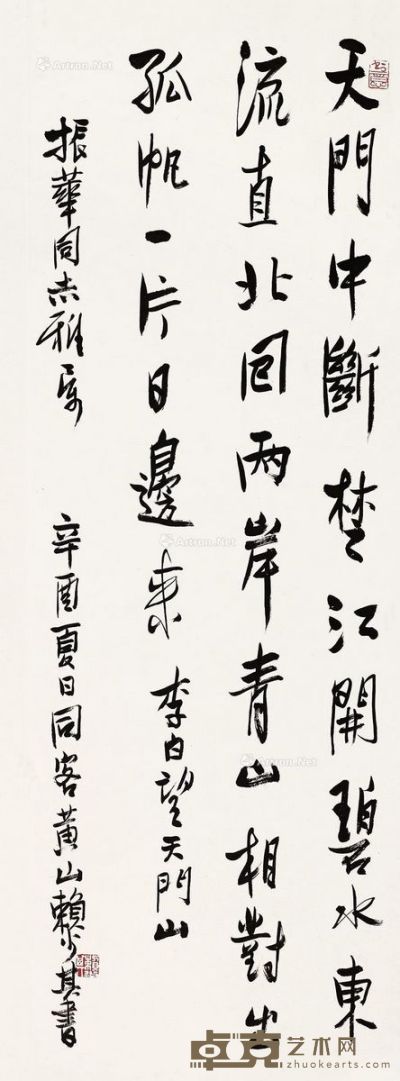 天門中斷楚江開碧水東
流直北回兩岸青山相對出
孤帆一片日邊来 李白望天門山
振華同志雅属
辛酉夏日同客黄山賴少其書
Artron.Net
卓克艺术网
www.zhuokearts.com